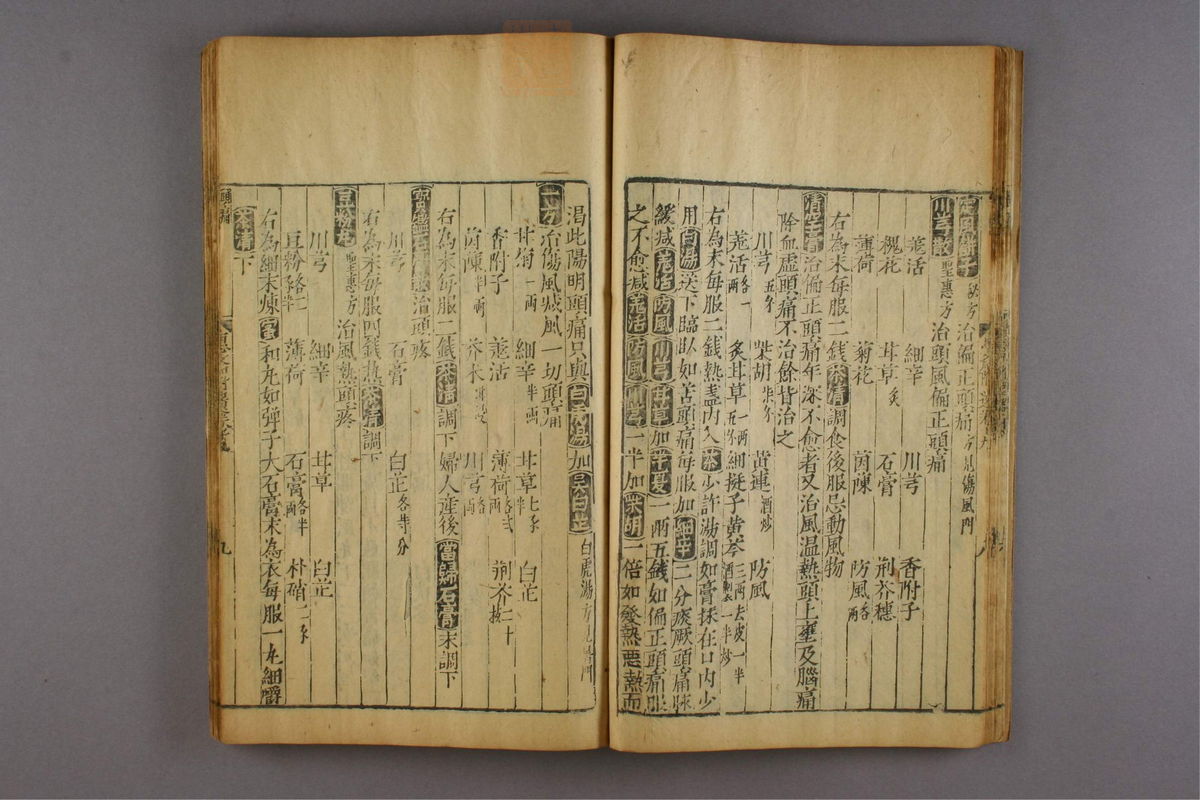 治偏正頭痛方見傷風門
川芎散聖惠方治頭風偏正頭痛
羗活 細辛 川芎 香附子
槐花 甘草炙 石膏 荆芥穗
薄荷 菊花 茵陳 防風各一兩
右為末每服二錢茶清調食後服忌動風物
清空膏治偏正頭痛年深不愈者又治風温熱頭上壅及腦痛
除血虛頭痛不治餘皆治之
川芎五分 柴胡七分 黃連酒炒 防風
羗活各一兩 炙甘草一兩五分 細挺子黃芩三兩去皮一半酒制一半炒
右為末每服二錢熱盞內入茶少許湯調如膏抹在口內少
用白湯送下臨臥如苦頭痛每服加細辛二分痰厥頭痛脉
緩减羗活防風川芎甘草加半夏一兩五錢如偏正頭痛服
之不愈减羗活防風川芎一半加柴胡一倍如發熱惡熱而
渴此陽明頭痛只與白虎湯加吳白芷白虎湯方見暑門
一方治傷風咸風一切頭痛
甘菊一兩 細辛半兩 甘草七分 白芷
香附子 羗活 薄荷 荆芥二十
茵陳半兩 川芎
右為末每服二錢茶清調下婦人産後當歸石膏末調下
治頭疼
川芎 石膏 白芷各等分
右為末每服四錢熱茶清調下
豆粉丸聖惠方治風熱頭疼
川芎 細辛 甘草 白芷
豆粉 薄荷 石膏各半兩 朴硝二分
右為細末煉蜜和丸如彈子大石膏末為衣每服一丸細嚼
茶清下
九